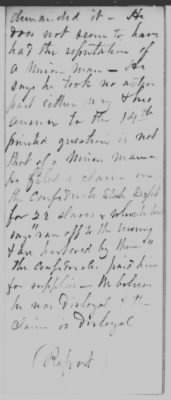 demanded it - He
does not seem to have
had the reputation of
a Union man - He
says he took no active
part either way & his
answer to the 14th
printed question is not
that of a Union man -
he filed a claim in
the Confederate State Dept
for 22 slaves & which he
says "ran off to the enemy
& are harbored by them"
the Confederates paid him
for supplies - We believe
he was Disloyal & the
claim is Disloyal
(Report)